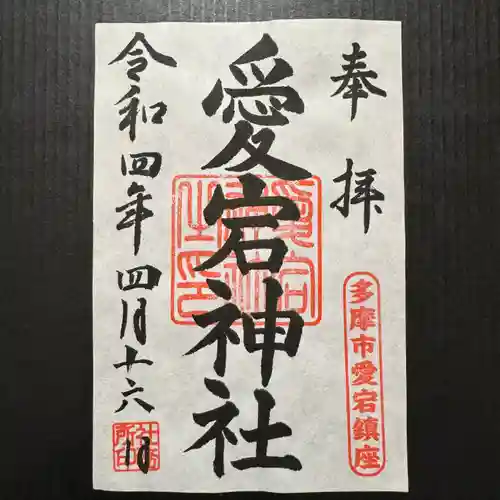 奉拝
多摩市愛宕鎮座
愛宕神社
令和四年四月十六日
社務所印